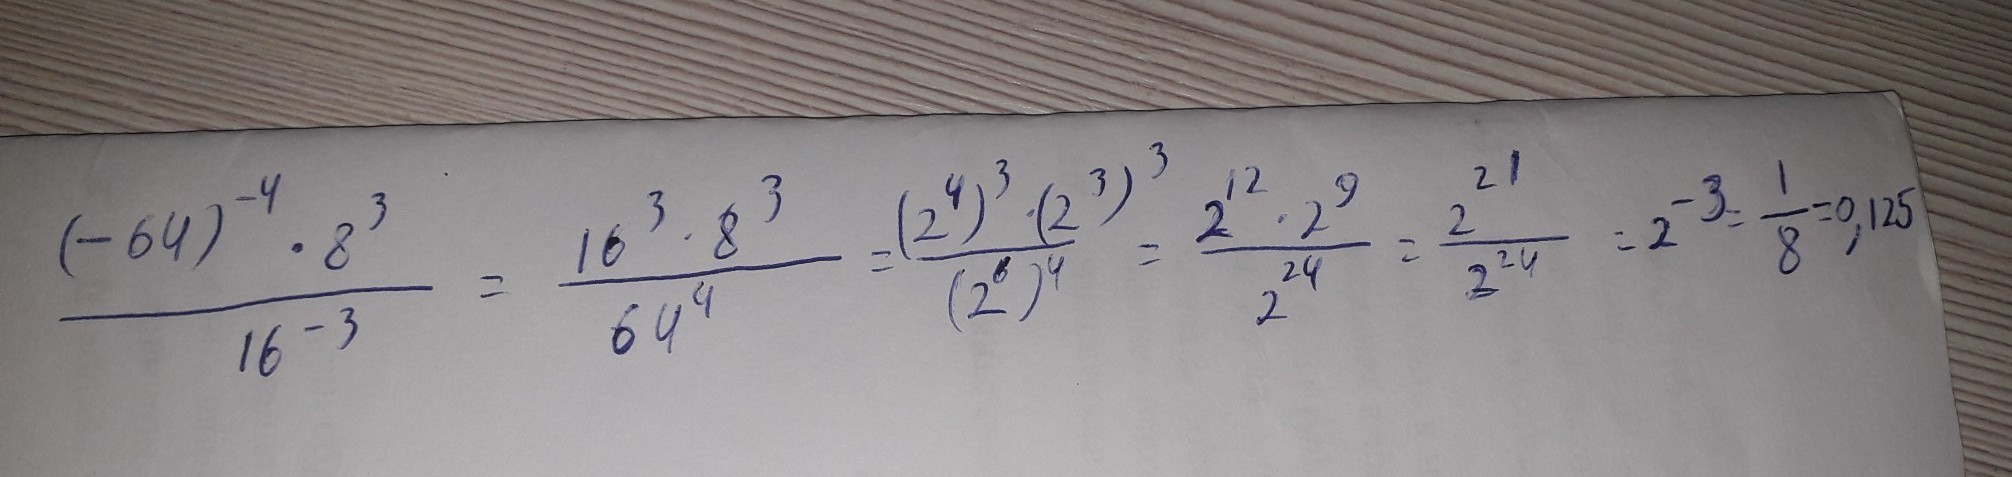 (-64)^{-4} · 8^3 / 16^{-3} = 16^3 · 8^3 / 64^4 = (2^4)^3 · (2^3)^3 / (2^6)^4 = 2^{12} · 2^9 / 2^{24} = 2^{21} / 2^{24} = 2^{-3} = 1/8 = 0,125